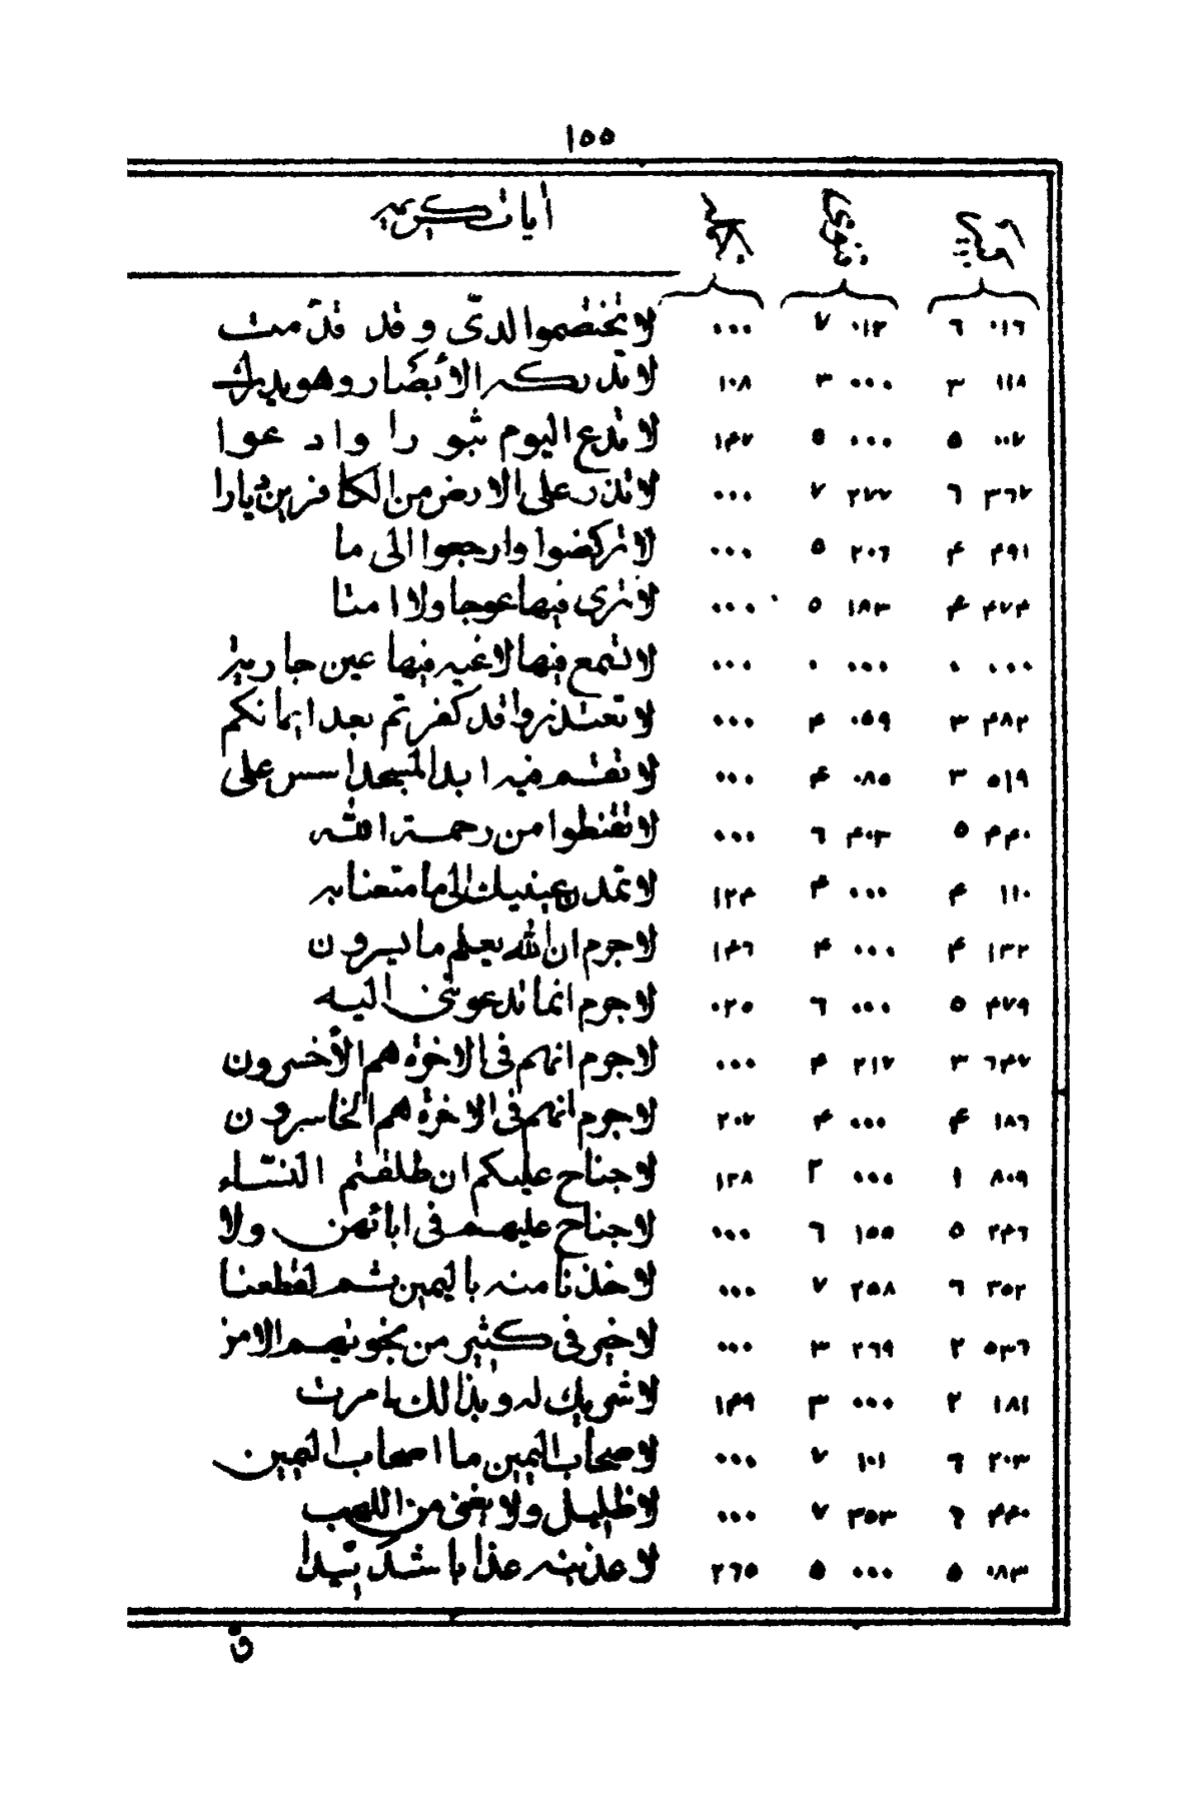 ١٥٥
آيات كريمه
٠١٦ ٦ ٠١٣ ٧ ٠٠٠ لا تختصموا لدىّ وقد قدّمت
١١٨ ٣ ٠٠٠ ٣ ١٠٨ لا تدركه الأبصار وهو يدرك
٠٠٧ ٥ ٠٠٠ ٥ ١۴٧ لا تدع اليوم ثبورا وادعوا
٣٦٧ ٦ ٢٧٧ ٧ ٠٠٠ لا تذر على الارض من الكافرين ديارا
۴٩١ ۴ ٢٠٦ ٥ ٠٠٠ لا تركضوا وارجعوا الى ما
۴٧۴ ۴ ١٨٣ ٥ ٠٠٠ لا ترى فيها عوجا ولا امتا
٠٠٠ ٠ ٠٠٠ ٠ ٠٠٠ لا تسمع فيها لاغيه فيها عين جارية
۴٨٢ ٣ ٠٥٩ ۴ ٠٠٠ لا تعتذروا قد كفرتم بعد ايمانكم
٥١٩ ٣ ٠٨٥ ۴ ٠٠٠ لا تقم فيه ابدا لمسجد اسس على
۴۴٠ ٥ ۴٠٣ ٦ ٠٠٠ لا تقنطوا من رحمة الله
١١٠ ۴ ٠٠٠ ۴ ١٢۴ لا تمدن عينيك الى ما متعنا به
١٣٢ ۴ ٠٠٠ ۴ ١۴٦ لا جرم ان الله يعلم ما يسرون
۴٧٩ ٥ ٠٠٠ ٦ ٠٢٥ لا جرم انما تدعوننى اليه
٦۴٧ ٣ ٢١٧ ۴ ٠٠٠ لا جرم انهم فى الاخرة هم الأخسرون
١٨٦ ۴ ٠٠٠ ۴ ٢٠٧ لا جرم انهم فى الاخرة هم الخاسرون
٨٠٩ ١ ٠٠٠ ٢ ١٣٨ لا جناح عليكم ان طلقتم النسّاء
٢۴٦ ٥ ١٥٥ ٦ ٠٠٠ لا جناح عليهم فى ابائهن ولا
٣٥٢ ٦ ٢٥٨ ٧ ٠٠٠ لا خذنا منه باليمين ثم لقطعنا
٥٣٦ ٢ ٢٦٩ ٣ ٠٠٠ لا خير فى كثير من نجويهم الا من
١٨١ ٢ ٠٠٠ ٣ ١۴٩ لا شريك له وبذالك امرت
٢٠٣ ٦ ١٠١ ٧ ٠٠٠ لا صحاب اليمين ما اصحاب اليمين
۴۴٠ ٦ ٣٥٣ ٧ ٠٠٠ لا ظليل ولا يغنى من اللهب
٠٨٣ ٥ ٠٠٠ ٥ ٢٦٥ لا عذبنه عذابا شديدا